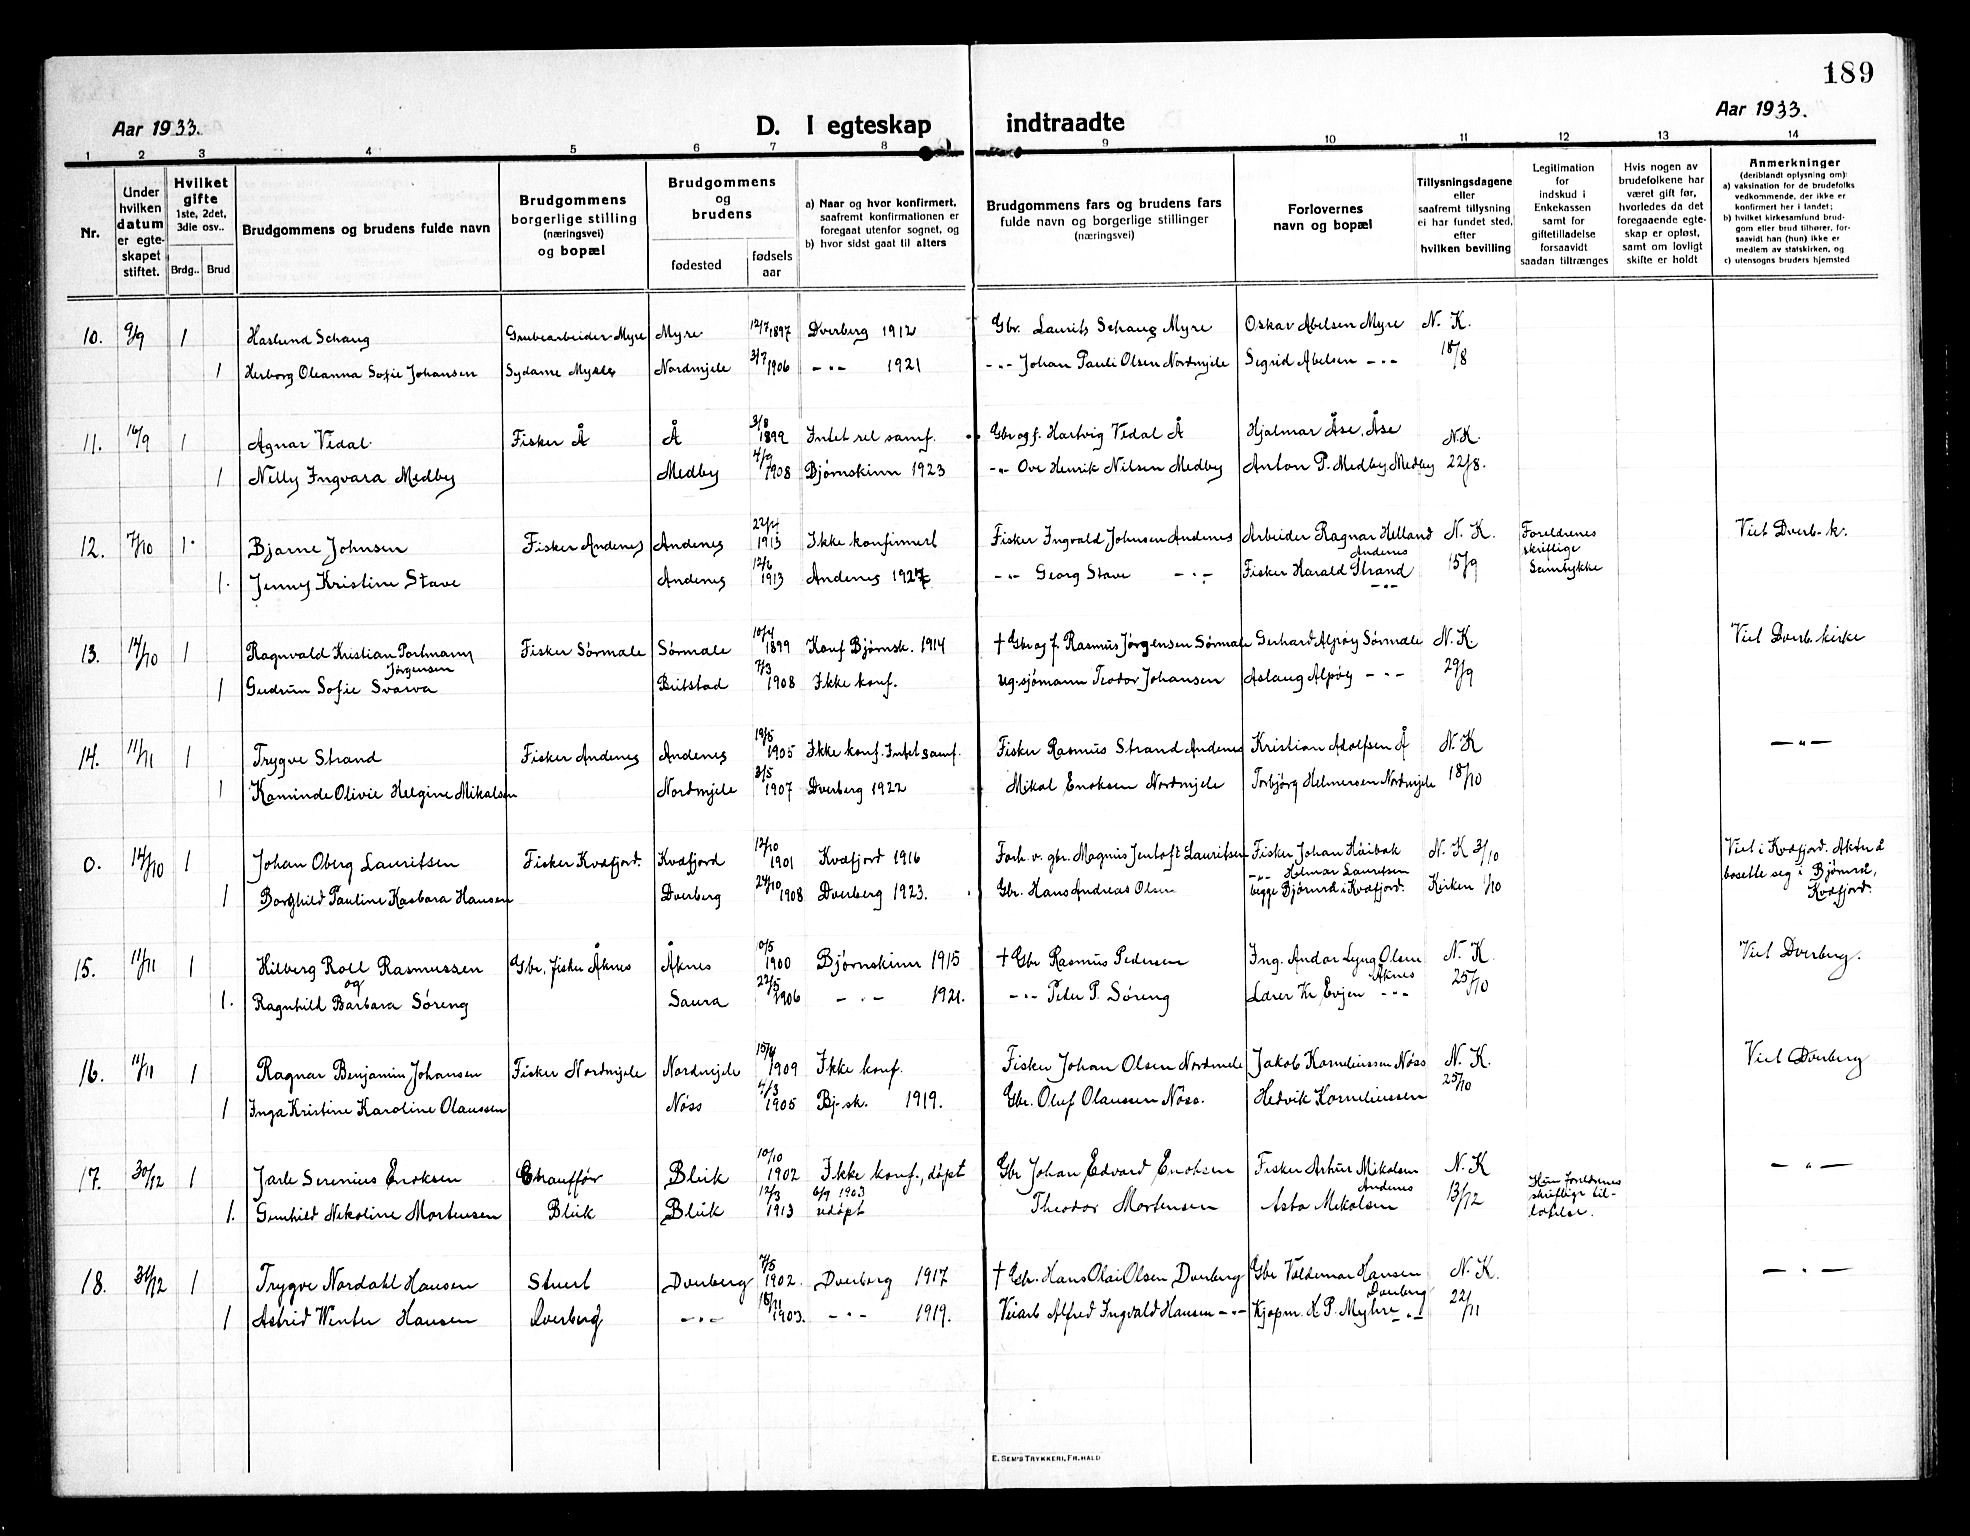 189
Aar 1933.
D. I egteskap indtraadte
Aar 1933.
1 2 3 4 5 6 7 8 9 10 11 12 13 14
Nr.
Under hvilken datum er egteskapet stiftet.
Hvilket gifte 1ste, 2det, 3die osv..
Brdg.. Brud
Brudgommens og brudens fulde navn
Brudgommens borgerlige stilling (næringsvei) og bopæl
Brudgommens og brudens
fødested
fødsels aar
a) Naar og hvor konfirmert, saafremt konfirmationen er foregaat utenfor sognet, og
b) hvor sidst gaat til alters
Brudgommens fars og brudens fars fulde navn og borgerlige stillinger (næringsvei)
Forlovernes navn og bopæl
Tillysningsdagene eller saafremt tillysning ei har fundet sted, efter hvilken bevilling
Legitimation for indskud i Enkekassen samt for giftetilladelse forsaavidt saadan tiltrænges
Hvis nogen av brudefolkene har været gift før, hvorledes da det foregaaende egteskap er opløst, samt om lovligt skifte er holdt
Anmerkninger (deriblandt oplysning om):
a) vaksination for de brudefolks vedkommende, der ikke er konfirmert her i landet;
b) hvilket kirkesamfund brudgom eller brud tilhører, forsaavidt han (hun) ikke er medlem av statskirken, og
c) utensogns bruders hjemsted
10. 9/9 1 Haslund Schaug Grubearbeider Myre Myre 12/7 1897 Dverberg 1912 Gbr. Laurits Schaug Myre Oskar Abelsen Myre N. K.
1 Herborg Oleanna Sofie Johansen Nordmjele 3/7 1906 -"- 1921 -"- Johan Pauli Olsen Nordmjele Sigrid Abelsen -"- 18/8
11. 16/9 1 Agnar Vidal Fisker Å Å 3/8 1899 Intet rel samf. Gbr og f. Hartvig Vidal Å Hjalmar Åse, Åse N.K.
1 Nelly Ingvara Medby Medby 4/9 1908 Bjørnskinn 1923 -"- Ove Henrik Nilsen Medby Anton P. Medby Medby 22/8.
12. 7/10 1 Bjarne Johnsen Fisker Andenes Andenes 1913 Ikke konfirmert Fisker Ingvald Johnsen Andenes Arbeider Ragnar Helland Andenes N. K. Foreldrenes skriftlige Samtykke Viet Dverb. k.
1. Jenny Kristine Stave Andenes 12/6 1913 Andenes 1927 -"- Georg Stave -"- Fisker Harald Strand -"- 15/9
13. 14/10 1 Ragnvald Kristian Portmann Jørgensen Fisker Sørmale Sørmale 10/4 1899 Konf Bjørnsk. 1914 † Gbr og f. Rasmus Jørgensen Sørmale Gerhard Alpøy Sørmale N. K. Viet Dverb. kirke
1 Gudrun Sofie Svarva Beitstad 7/3 1908 Ikke konf. ug. sjømann Teodor Johansen Aslaug Alpøy -"- 29/9
14. 11/11 1 Trygve Strand Fisker Andenes Andenes 19/5 1905 Ikke konf. Intet samf. Fisker Rasmus Strand Andenes Kristian Adolfsen Å N. K -"-
1 Kaminde Olivie Helgine Mikalsen Nordmjele 3/5 1907 Dverberg 1922 Mikal Enoksen Nordmjele Torbjørg Helmersen Nordmjele 18/10
0. 14/10 1 Johan Oberg Lauritsen Fisker Kvæfjord. Kvæfjord 12/10 1901 Kvæfjord 1916 Forh. v. gbr. Magnus Jentoft Lauritsen Fisker Johan Høibak N. K 3/10 Viet i Kvæfjord. Akter å bosette seg i Kvæfjord.
1 Borghild Pauline Kasbara Hansen Dverberg 24/10 1908 Dverberg 1923. Gbr. Hans Andreas Olsen -"- Helmar Lauritsen begge i Kvæfjord. Kirken 1/10
15. 11/11 1 Hilberg Roll Rasmussen og Gbr, fisker Åknes Åknes 1900 Bjørnskinn 1915 † Gbr Rasmus Pedersen Ing. Andor Lyng Olsen Åknes N. K. Viet Dverberg.
1. Ragnhild Barbara Søreng Saura 22/5 1906 -"- 1921. -"- Peter P. Søreng Lærer Kr Evjen -"- 25/10
16. 11/11 1 Ragnar Benjamin Johansen Fisker Nordmjele Nordmjele 15/4 1909 Ikke konf. Fisker Johan Olsen Nordmele Jakob Korneliussen Nøss N. K. Viet Dverberg
1 Inga Kristine Karoline Olaussen Nøss 4/3 1905 Bj.sk. 1919. Gbr. Oluf Olaussen Nøss. Hedvik Korneliussen 25/10
17. 30/12 1 Jarle Serenius Enoksen Chauffør Bleik 10/10 1902 Ikke konf., døpt 6/9 1903 Gbr Johan Edvard Enoksen Fisker Arthur Mikalsen Andenes N. K Hun foreldrenes skriftlige tillatelse. -"-
1. Gunhild Nikoline Mortensen Bleik Bleik 12/3 1913 udøpt Theodor Mortensen Asta Mikalsen 13/12
18. 31/12 1 Trygve Nordahl Hansen Stuert Dverberg 7/5 1902. Dverberg 1917 † Gbr. Hans Olai Olsen Dverberg Gbr Valdemar Hansen Dverberg N. K. -"-
1 Astrid Winter Hansen Dverberg -"- 18/11 1903. -"- 1919. Veiarb Alfred Ingvald Hansen -"- Kjøpm. K. P. Myhre -"- 22/11
E. SEM'S TRYKKERI, FR.HALD